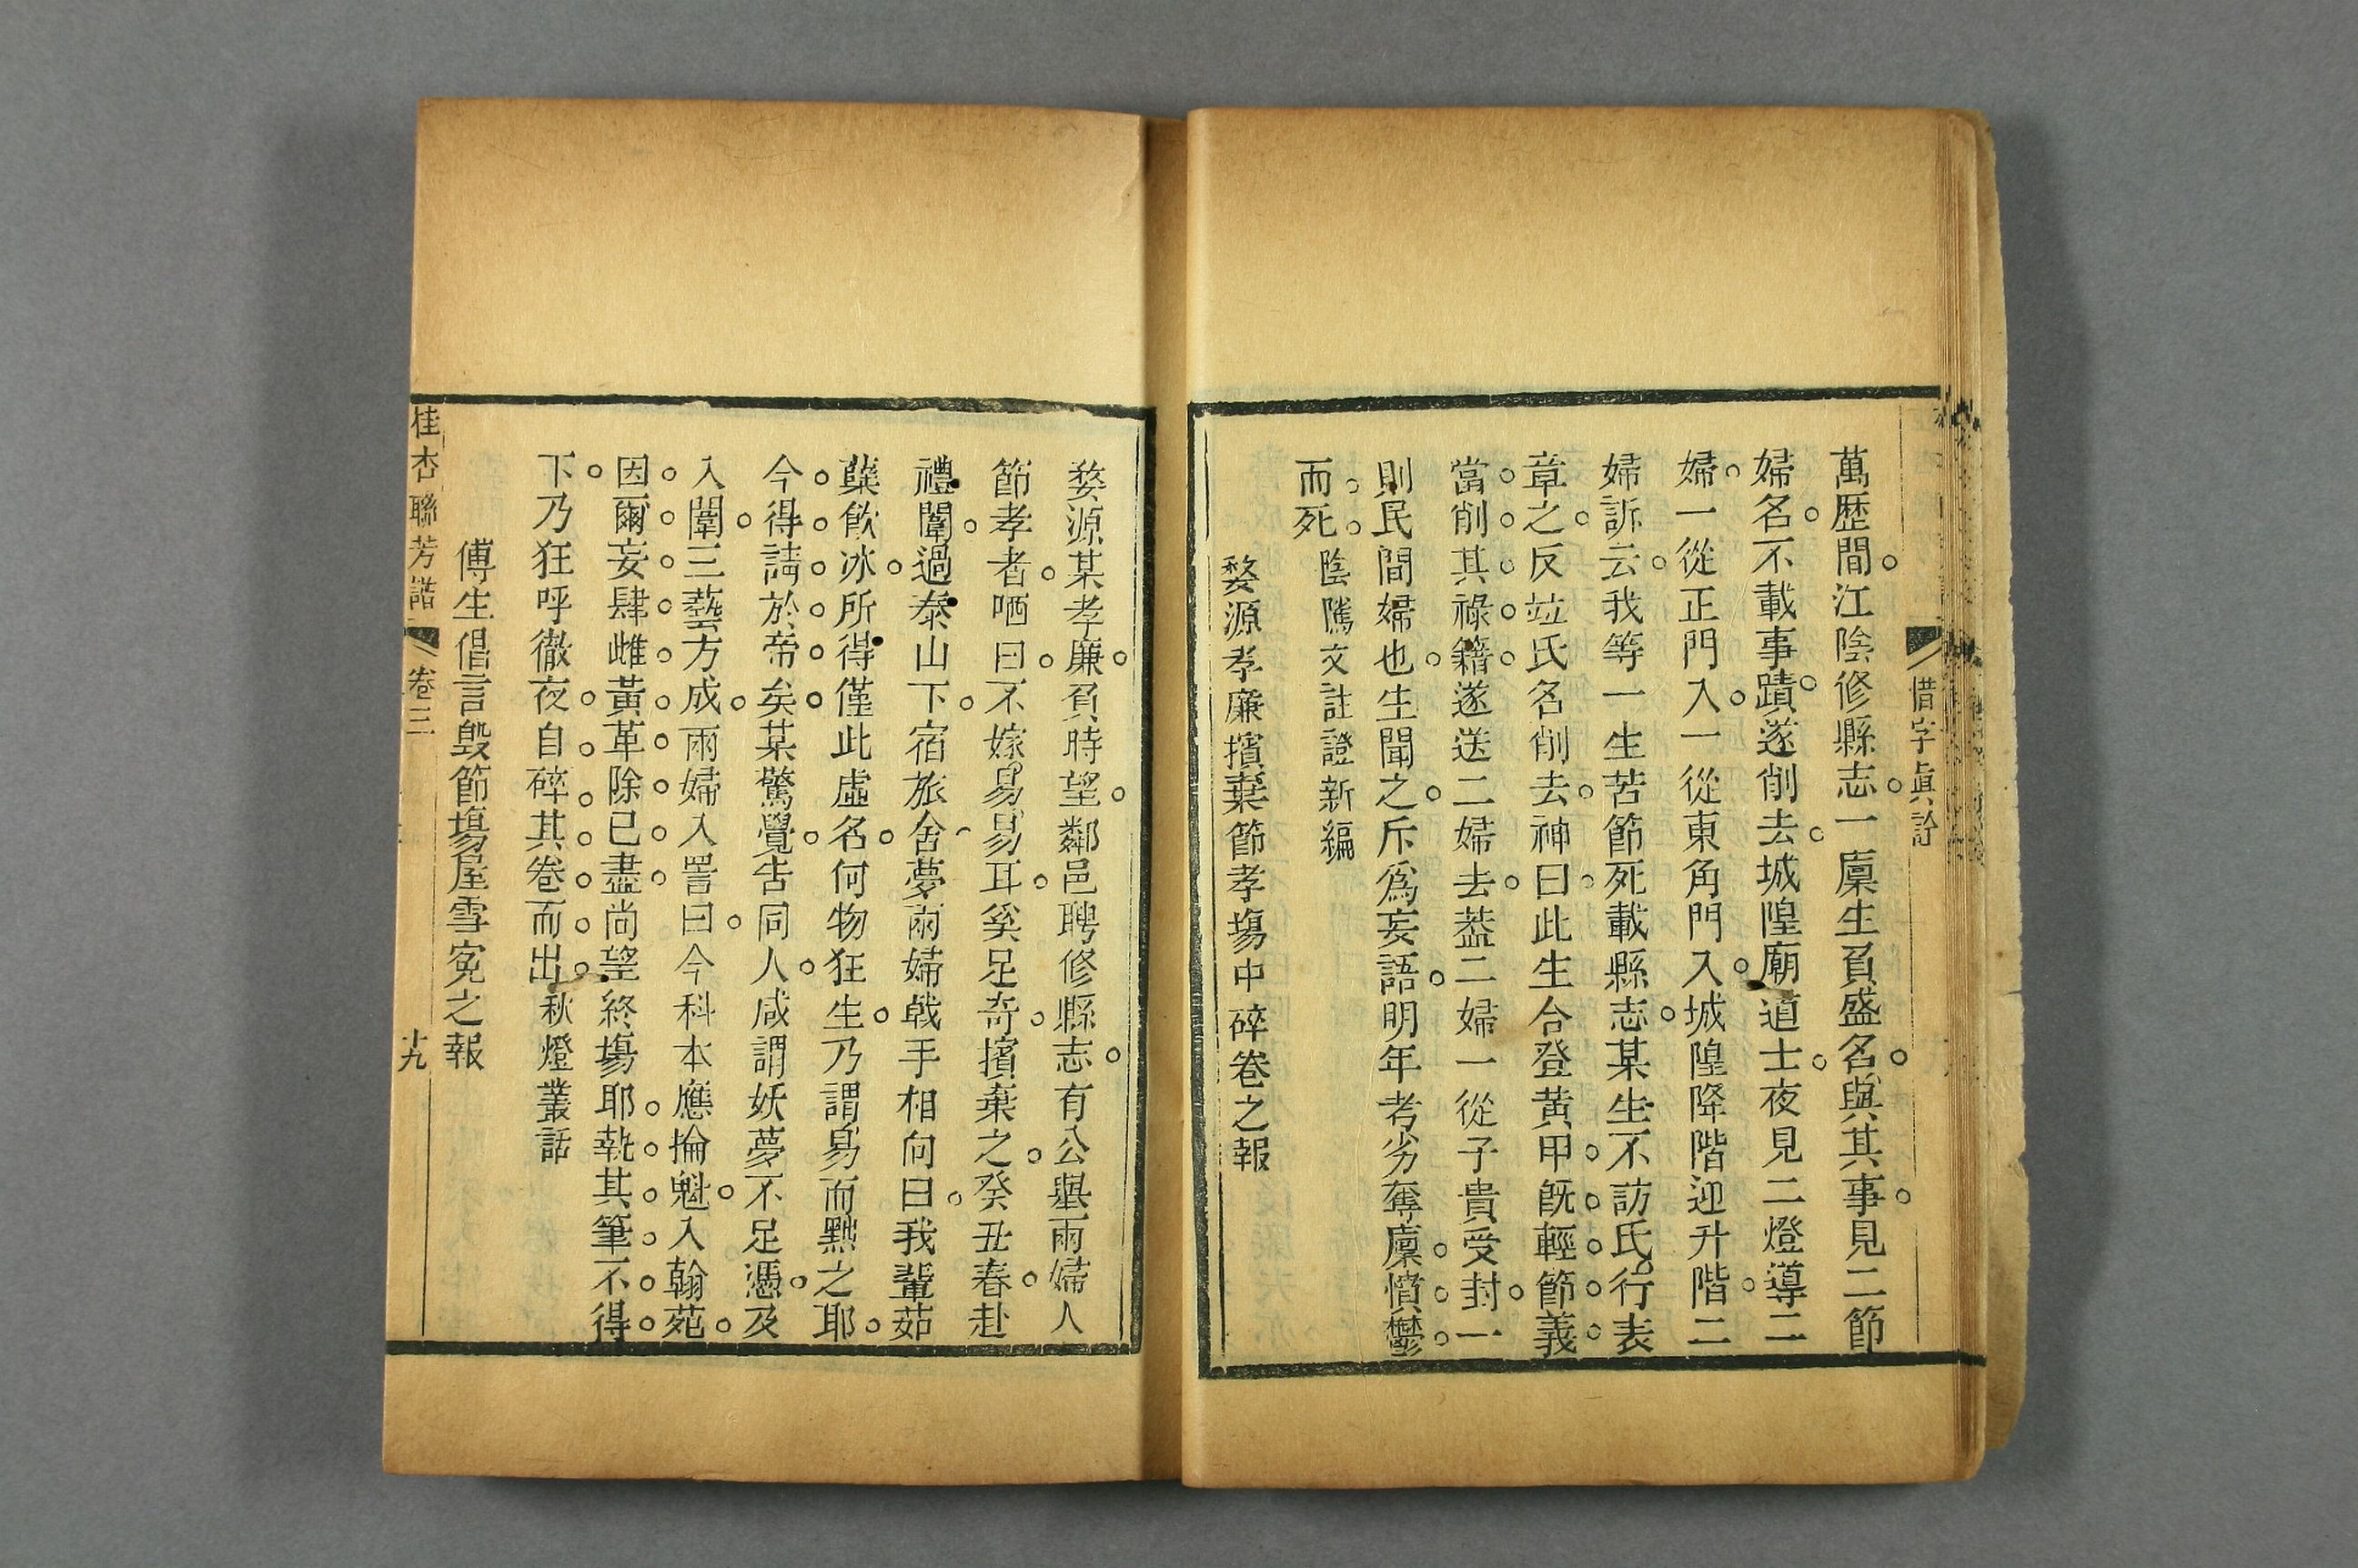 惜字眞詮
萬歷間江陰修縣志一廩生負盛名與其事見二節
婦名不載事蹟遂削去城隍廟道士夜見二燈導二
婦一從正門入一從東角門入城隍降階迎升階二
婦訴云我等一生苦節死載縣志某生不訪氏行表
章之反竝氏名削去神曰此生合登黃甲旣輕節義
當削其祿籍遂送二婦去葢二婦一從子貴受封一
則民間婦也生聞之斥爲妄語明年考劣奪廩憤鬱
而死陰隲文註證新編
婺源孝廉擯棄節孝塲中碎卷之報
婺源某孝廉負時望鄰邑聘修縣志有公舉兩婦人
節孝者哂曰不嫁易易耳奚足奇擯棄之癸丑春赴
禮闈過泰山下宿旅舍夢兩婦戟手相向曰我輩茹
蘖飮冰所得僅此虛名何物狂生乃謂易而黜之耶
今得請於帝矣某驚覺吿同人咸謂妖夢不足憑及
入闈三藝方成兩婦入詈曰今科本應掄魁入翰苑
因爾妄肆雌黃革除已盡尚望終塲耶執其筆不得
下乃狂呼徹夜自碎其卷而出秋燈叢話
傅生倡言毀節塲屋雪寃之報
桂杏聯芳譜 卷三 十九